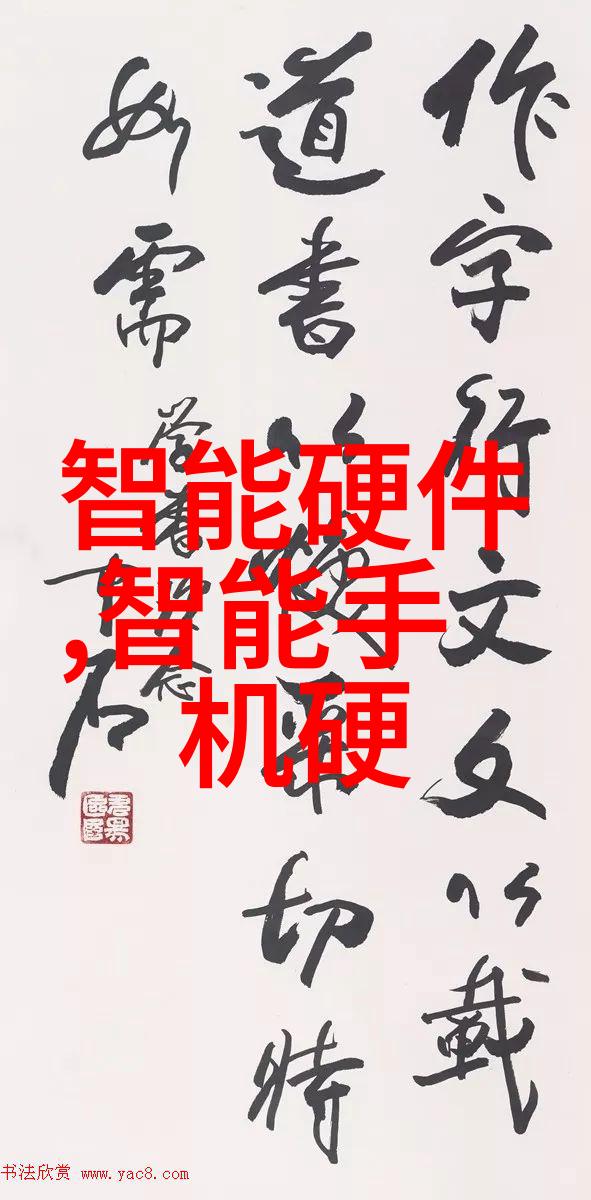 作字行文文以載
道書以切時
如需
智能硬件
,智能手
机硬
书法欣赏 www.yac8.com